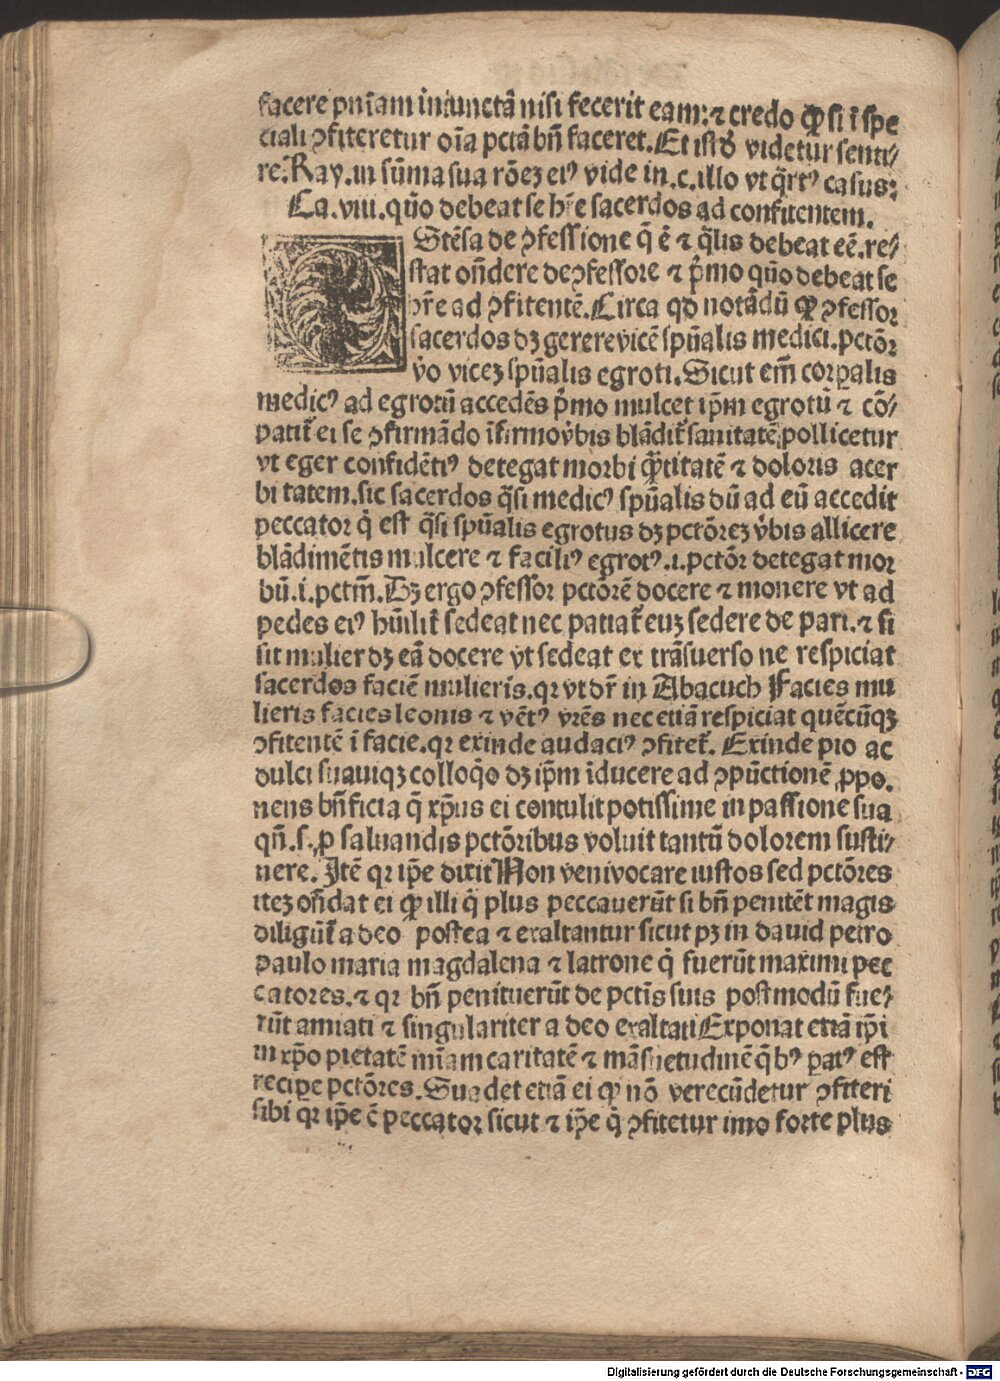 facere pniam iniunctā nisi fecerit eam: ⁊ credo ꝙ si ī spe
ciali ꝯfiteretur oīa pctā bn̄ faceret. Et istđ videtur senti⸗
re. Ray. in sūma sua rōeꝫ eiꝰ vide in .c. illo vt q̄rit᷑ casus:
Ca. viii. quō debeat se hr̄e sacerdos ad confitentem.
Stēsa de ꝯfessione q̄ ē ⁊ q̄lis debeat eē. re⸗
stat on̄dere de ꝯfessore ⁊ pͥmo quō debeat se
hr̄e ad ꝯfitentē. Circa qđ notādū ꝙ ꝯfessor
sacerdos dꝫ gerere vicē spūalis medici. pctōr
vͦo viceꝫ spūalis egroti. Sicut em̄ corꝑalis
medicꝰ ad egrotū accedēs pͥmo mulcet ip̄m egrotū ⁊ cō⸗
patit᷑ ei se ꝯfirmādo īfirmo vͦbis blādit᷑ sanitatē pollicetur
vt eger confidētiꝰ detegat morbi q̄ntitatē ⁊ doloris acer
bitatem. sic sacerdos q̄si medicꝰ spūalis dū ad eū accedit
peccator qͥ est q̄si spūalis egrotus dꝫ pctōreꝫ vͦbis allicere
blādimētis mulcere ⁊ faciliꝰ egrotꝰ .i. pctōr detegat mor
bū .i. pctm̄. Dꝫ ergo ꝯfessor pctōrē docere ⁊ monere vt ad
pedes eiꝰ hūilit᷑ sedeat nec patiat᷑ euꝫ sedere de pari. ⁊ si
sit mulier dꝫ eā docere vt sedeat ex trāsuerso ne respiciat
sacerdos faciē mulieris. qꝛ vt dr̄ in Abacuch Facies mu
lieris facies leonis ⁊ vētꝰ vrēs nec etiā respiciat quēcūqꝫ
ꝯfitentē ī facie. qꝛ exinde audaciꝰ ꝯfitet᷑. Exinde pio ac
dulci suauiqꝫ colloqͦo dꝫ ip̄m īducere ad ꝯpūctionē ꝓpo.
nens bn̄ficia q̄ xp̄us ei contulit potissime in passione sua
qn̄ .s. ꝓ saluandis pctōribus voluit tantū dolorem susti⸗
nere. Itē qꝛ ip̄e dixit Non veni vocare iustos sed pctōres
iteꝫ on̄dat ei ꝙ illi qͥ plus peccauerūt si bn̄ penitēt magis
diligūt᷑ a deo postea ⁊ exaltantur sicut pꝫ in dauid petro
paulo maria magdalena ⁊ latrone qͥ fuerūt maximi pec
catores. ⁊ qꝛ bn̄ penituerūt de pctīs suis postmodū fue⸗
rūt amati ⁊ singulariter a deo exaltati Exponat etiā ip̄i
in xp̄o pietatē mīam caritatē ⁊ māsuetudinē q̄bꝰ ꝑatꝰ est
recipe pctōres. Suadet etiā ei ꝙ nō verecūdetur ꝯfiteri
sibi qꝛ ip̄e ē peccator sicut ⁊ ip̄e qͥ ꝯfitetur imo forte plus
Digitalisierung gefördert durch die Deutsche Forschungsgemeinschaft - DFG